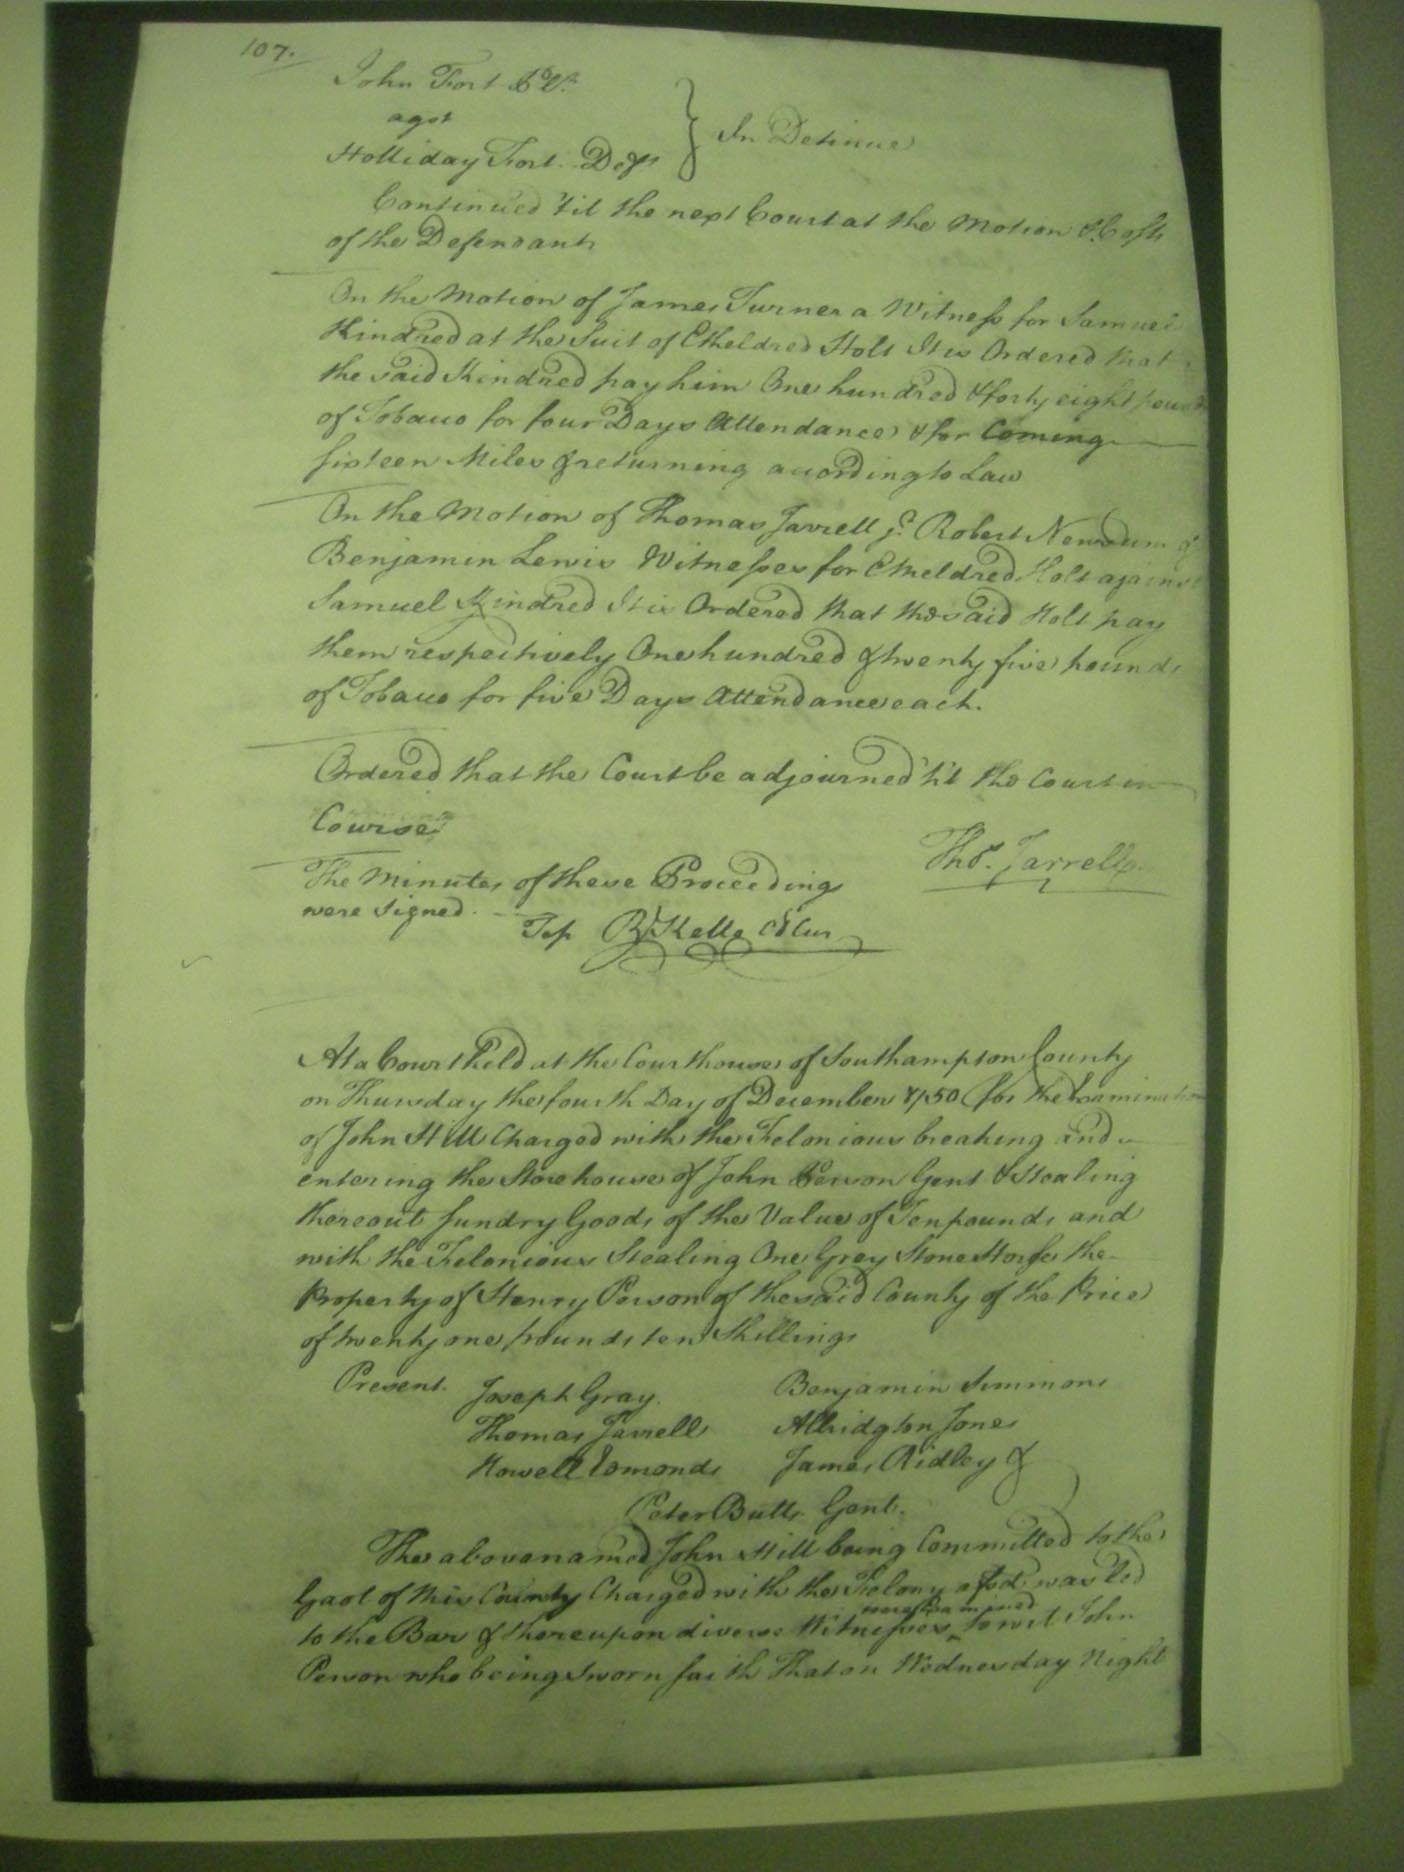 107.
John Fort Plt.
agst
Holliday Fort Deft
In Detinue
Continued 'til the next Court at the Motion & Costs
of the Defendant
On the Motion of James Turner a Witness for Samuel
Kindred at the Suit of Etheldred Holt It is Ordered that
the said Kindred pay him One hundred & forty eight pounds
of Tobacco for four Days Attendance & for Coming
sixteen Miles & returning according to Law
On the Motion of Thomas Jarrell jr. Robert Newsum &
Benjamin Lewis Witnesses for Etheldred Holt against
Samuel Kindred It is Ordered that the said Holt pay
them respectively One hundred & twenty five pounds
of Tobacco for five Days Attendance each.
Ordered that the Court be adjourned 'til the Court in
Course
The Minutes of these Proceedings
were Signed.
Thos. Jarrell
Test R. Kello Cl Cur
At a Court held at the Courthouse of Southampton County
on Thursday the fourth Day of December 1750 for the Examination
of John Hill Charged with the Felonious breaking and
entering the Storehouse of John Person Gent & Stealing
thereout sundry Goods of the Value of Ten pounds and
with the Felonious Stealing One Grey Stone Horse the
Property of Henry Person of the said County of the Price
of twenty one pounds ten Shillings
Present. Joseph Gray Benjamin Simmons
Thomas Jarrell Albridgton Jones
Howell Edmonds James Ridley &
Peter Butts Gent.
The above named John Hill being Committed to the
Gaol of this County Charged with the Felony afsd. was led
to the Bar & thereupon diverse Witnesses were Examined towit John
Person who being Sworn saith That on Wednesday Night